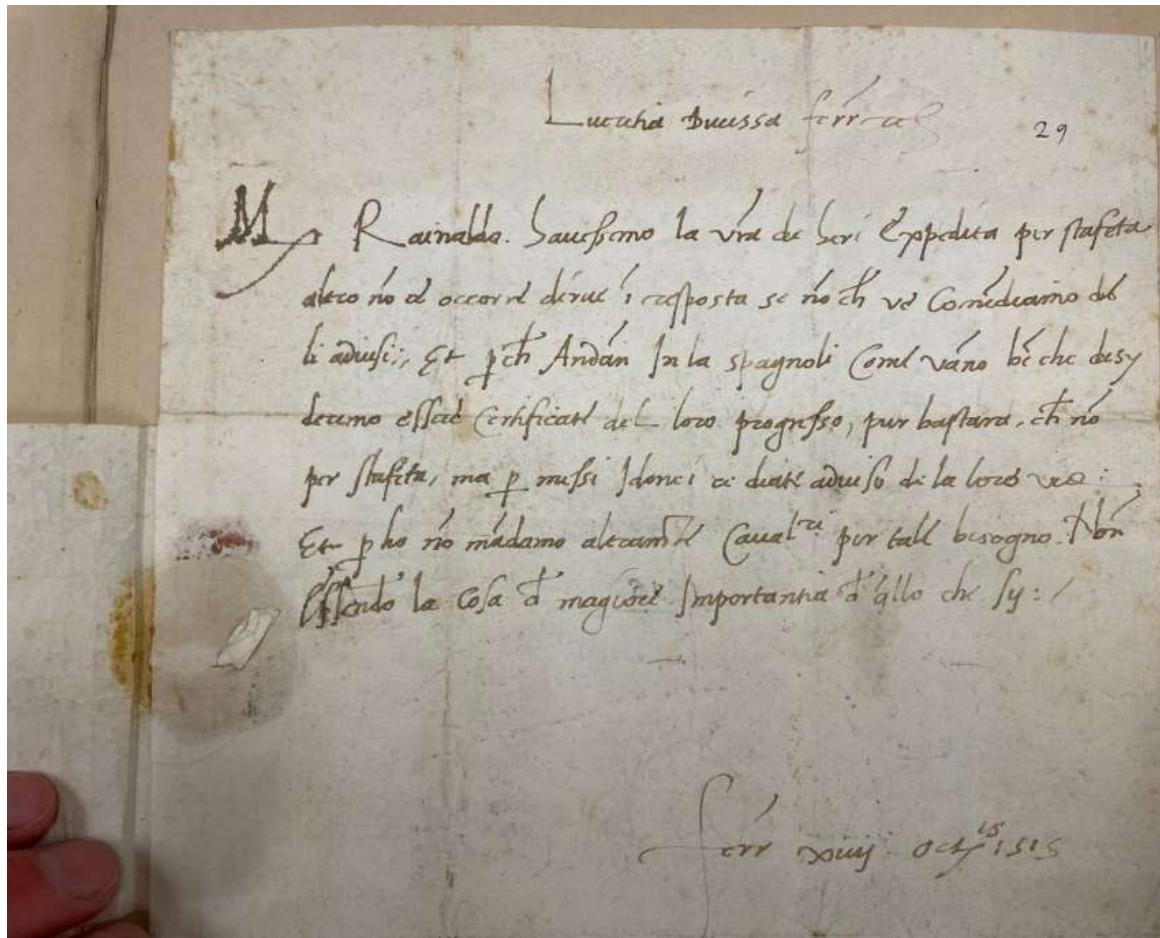 Lucretia Ducissa ferrarie
29
M Rainaldo. Havessemo la vr̄a de heri Expedita per stafeta
altro nō ce occorre dirve ī resposta se nō ch̄ ve Comēdiamo de
li advisi: Et p̱ch̄ Andān In la spagnoli Come vāno bē che desy
deramo essere Certificate del loro progresso, pur bastara, ch̄ nō
per stafeta, ma p̱ messi Idonei ce diate adviso de la loro via:
Et p̱ho nō mādamo altram̄te Caval^ri per tale bisogno. Non
Essendo la Cosa d̄ magiore Importantia d̄ q̄llo che sy:
ferr xiiij octobris 1515